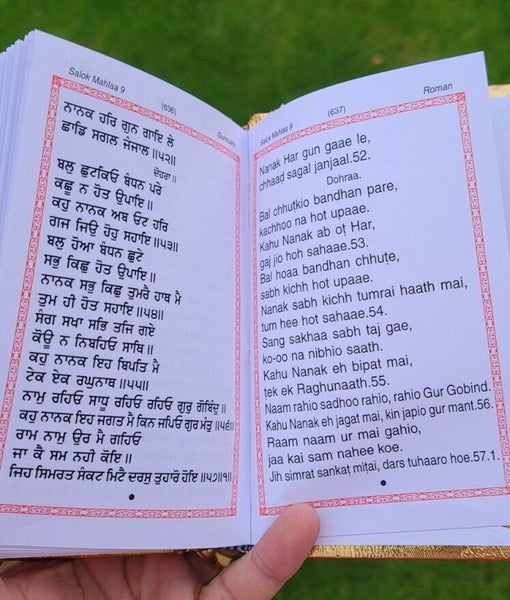 Salok Mahlaa 9
(636)
Gurmukhi
ਨਾਨਕ ਹਰਿ ਗੁਨ ਗਾਇ ਲੇ
ਛਾਡਿ ਸਗਲ ਜੰਜਾਲ ॥੫੨॥
ਦੋਹਰਾ॥
ਬਲੁ ਛੁਟਕਿਓ ਬੰਧਨ ਪਰੇ
ਕਛੂ ਨ ਹੋਤ ਉਪਾਇ॥
ਕਹੁ ਨਾਨਕ ਅਬ ਓਟ ਹਰਿ
ਗਜ ਜਿਉ ਹੋਹੁ ਸਹਾਇ॥੫੩॥
ਬਲੁ ਹੋਆ ਬੰਧਨ ਛੁਟੇ
ਸਭੁ ਕਿਛੁ ਹੋਤ ਉਪਾਇ॥
ਨਾਨਕ ਸਭੁ ਕਿਛੁ ਤੁਮਰੈ ਹਾਥ ਮੈ
ਤੁਮ ਹੀ ਹੋਤ ਸਹਾਇ॥੫੪॥
ਸੰਗ ਸਖਾ ਸਭਿ ਤਜਿ ਗਏ
ਕੋਊ ਨ ਨਿਬਹਿਓ ਸਾਥਿ॥
ਕਹੁ ਨਾਨਕ ਇਹ ਬਿਪਤਿ ਮੈ
ਟੇਕ ਏਕ ਰਘੁਨਾਥ॥੫੫॥
ਨਾਮੁ ਰਹਿਓ ਸਾਧੂ ਰਹਿਓ ਰਹਿਓ ਗੁਰੁ ਗੋਬਿੰਦੁ॥
ਕਹੁ ਨਾਨਕ ਇਹ ਜਗਤ ਮੈ ਕਿਨ ਜਪਿਓ ਗੁਰ ਮੰਤੁ॥੫੬॥
ਰਾਮ ਨਾਮੁ ਉਰ ਮੈ ਗਹਿਓ
ਜਾ ਕੈ ਸਮ ਨਹੀ ਕੋਇ॥
ਜਿਹ ਸਿਮਰਤ ਸੰਕਟ ਮਿਟੈ ਦਰਸੁ ਤੁਹਾਰੋ ਹੋਇ॥੫੭॥੧॥
Salok Mahlaa 9
(637)
Roman
Nanak Har gun gaae le,
chhaad sagal janjaal.52.
Dohraa.
Bal chhuṭkio bandhan pare,
kachhoo na hot upaae.
Kahu Nanak ab oṭ Har,
gaj jio hoh sahaae.53.
Bal hoaa bandhan chhuṭe,
sabh kichh hot upaae.
Nanak sabh kichh tumrai haath mai,
tum hee hot sahaae.54.
Sang sakhaa sabh taj gae,
ko-oo na nibhio saath.
Kahu Nanak eh bipat mai,
ṭek ek Raghunaath.55.
Naam rahio sadhoo rahio, rahio Gur Gobind.
Kahu Nanak eh jagat mai, kin japio gur mant.56.
Raam naam ur mai gahio,
jaa kai sam nahee koe.
Jih simrat sankaṭ miṭai, dars tuhaaro hoe.57.1.